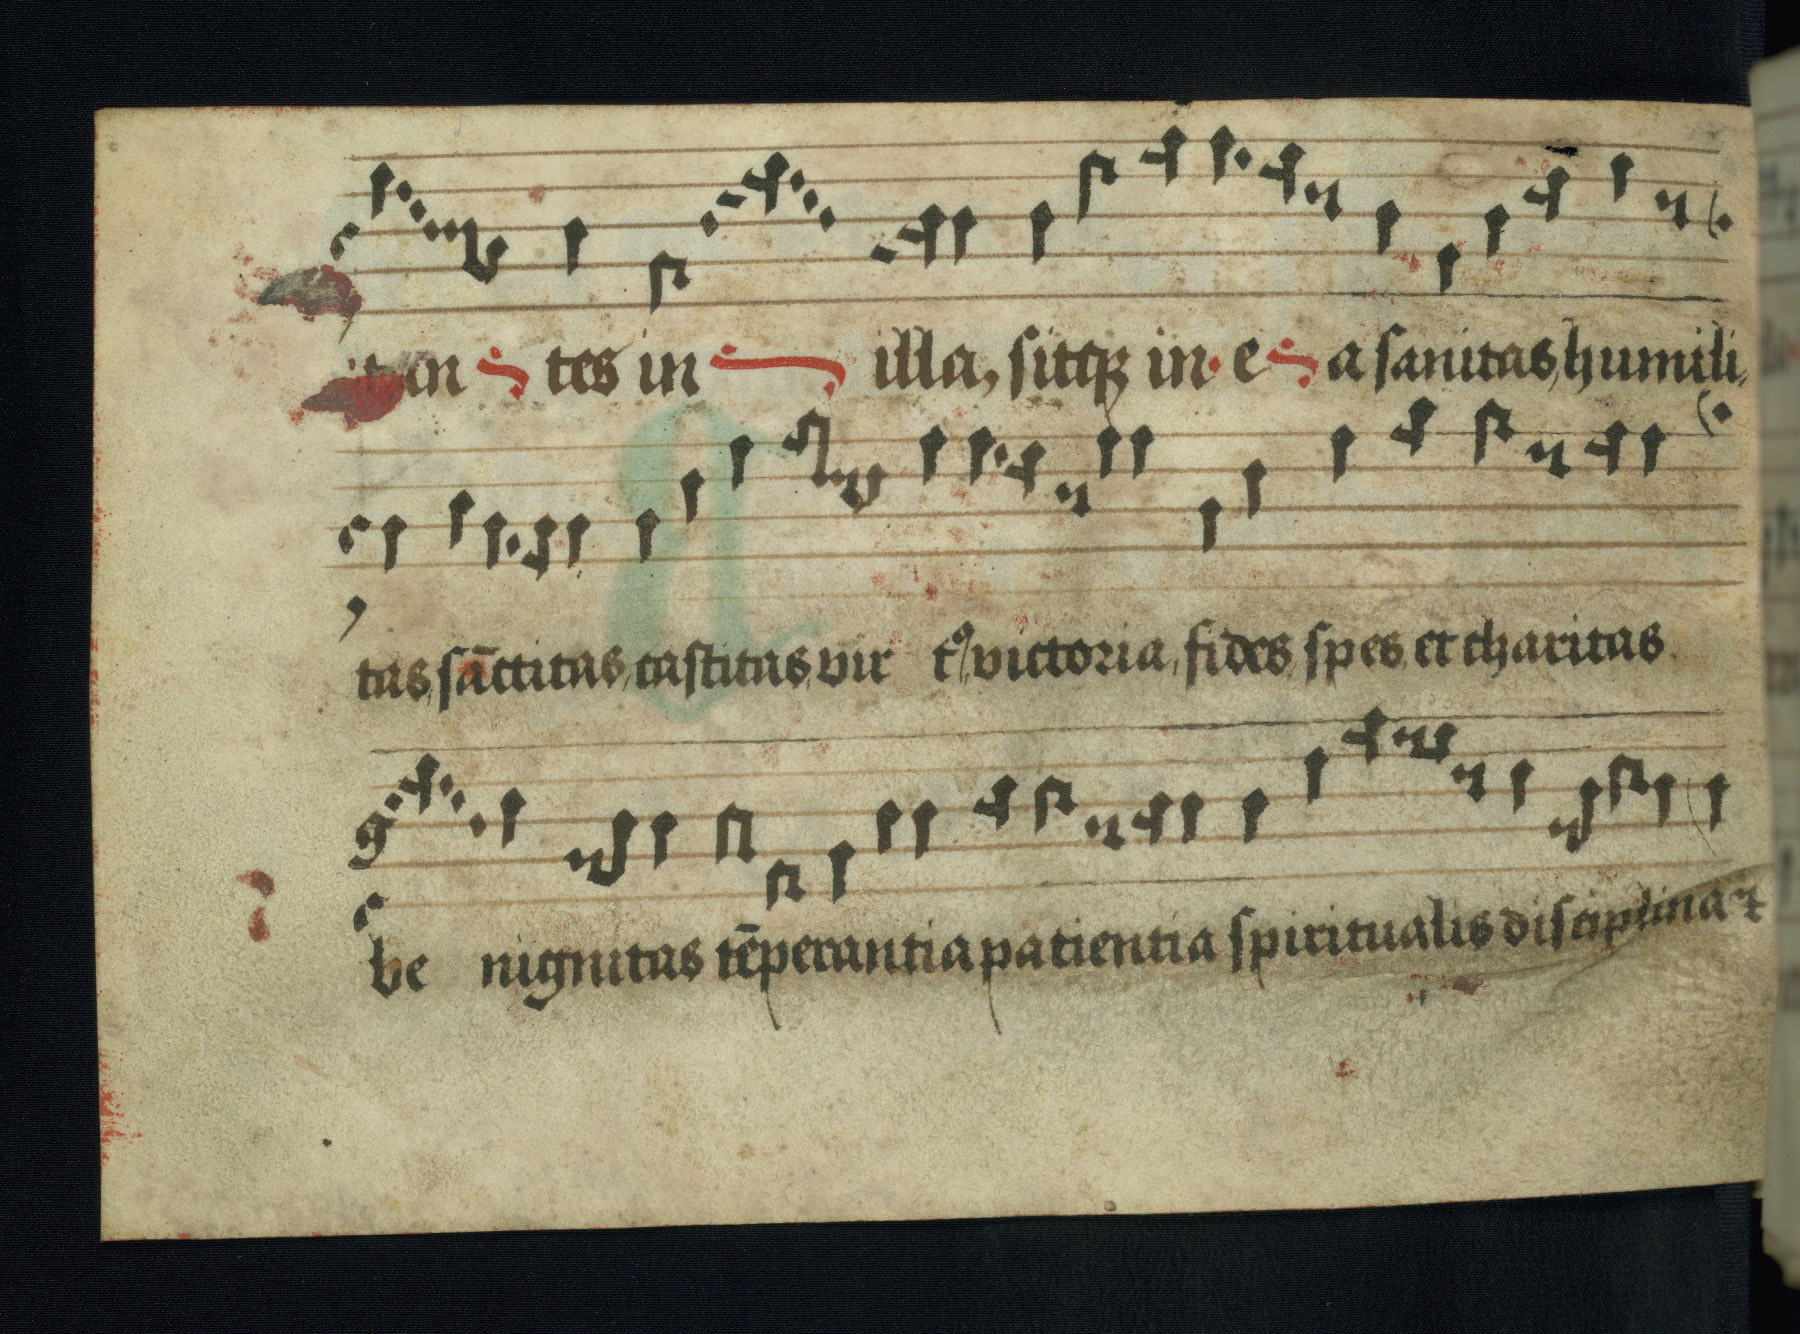 itan tes in illa, sitqꝫ in e a sanitas, humili,
tas, sāctitas, castitas, vir tꝰ, victoria, fides, spes, et charitas
be nignitas tēperantia patientia spiritualis disciplina ⁊